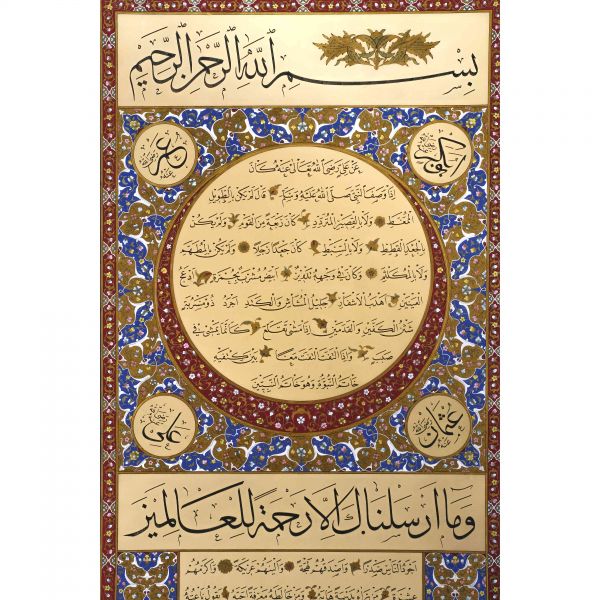 بسم الله الرحمن الرحيم
ابوبكر رضي الله عنه
عمر رضي الله عنه
عن علي رضي الله تعالى عنه كان
اذا وصف النبي صلى الله عليه وسلم قال لم يكن بالطويل
الممغط ولا بالقصير المتردد كان ربعة من القوم ولم يكن
بالجعد القطط ولا بالسبط كان جعدا رجلا ولم يكن بالمطهم
ولا بالمكلثم وكان في وجهه تدوير ابيض مشرب بحمرة ادعج
العينين اهدب الاشفار جليل المشاش والكتد اجرد ذو مسربة
شثن الكفين والقدمين اذا مشى تقلع كانما يمشي في
صبب واذا التفت التفت معا بين كتفيه
خاتم النبوة وهو خاتم النبيين
عثمان رضي الله عنه
علي رضي الله عنه
وما ارسلناك الا رحمة للعالمين
اجود الناس صدرا واصدقهم لهجة والينهم عريكة واكرمهم